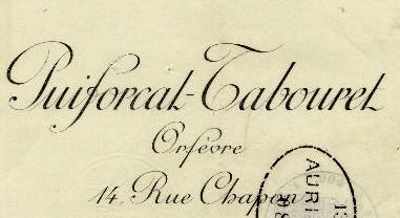 Puiforcat-Tabouret
Orfèvre
14, Rue Chapon